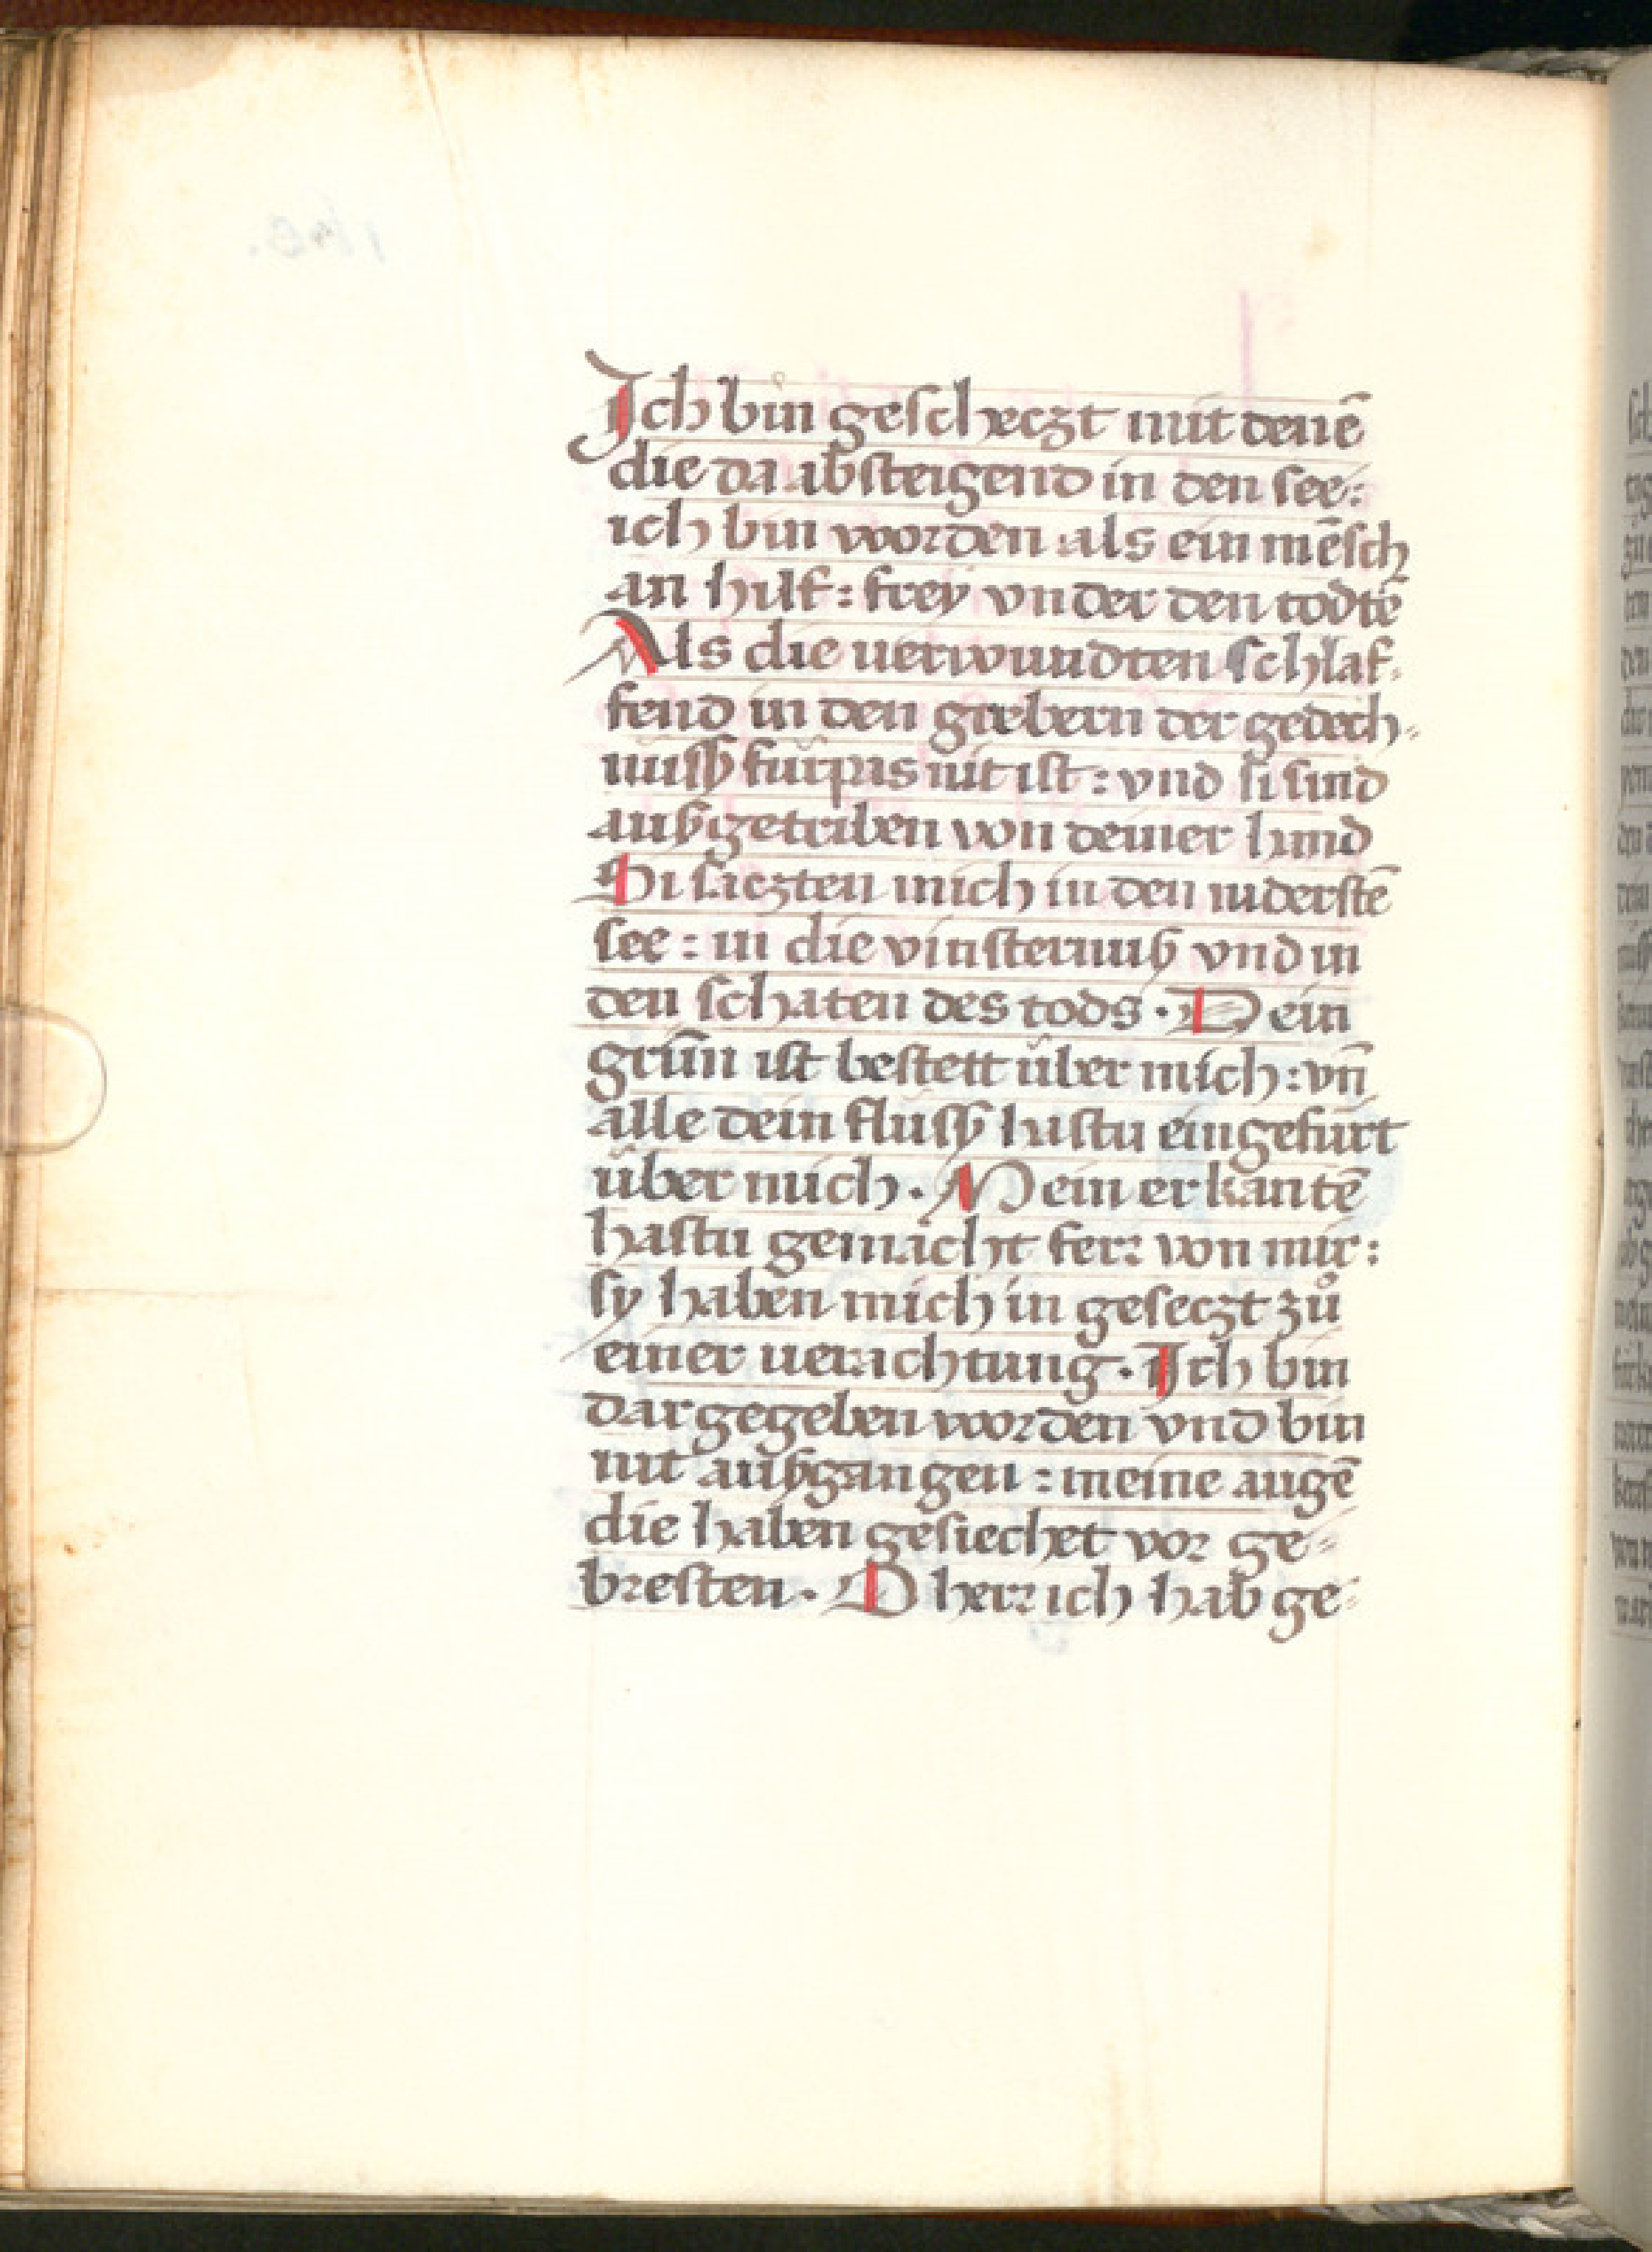 Ich bin gescheczt mit denē
die da absteigend in den see:
ich bin worden als ein mēsch
an hilf: frey vnder den todtē
Als die uerwundten schlaf-
fend in den grebern der gedech-
nuſſ fúrpas nit ist: vnd si sind
außgetriben von deiner hand
Si saczten mich in den niderstē
see: in die vinsternuß vnd in
den schaten des tods. Dein
grim̄ ist bestett über mich: vn̄
alle dein fluſſ hastu eingefúrt
über mich. Mein erkantē
hastu gemacht ferr von mir:
sy haben mich in geseczt zů
einer uerachtung. Ich bin
dargegeben worden vnd bin
nit außgangen: meine augē
die haben gesiechet vor ge-
bresten. O herr ich hab ge-